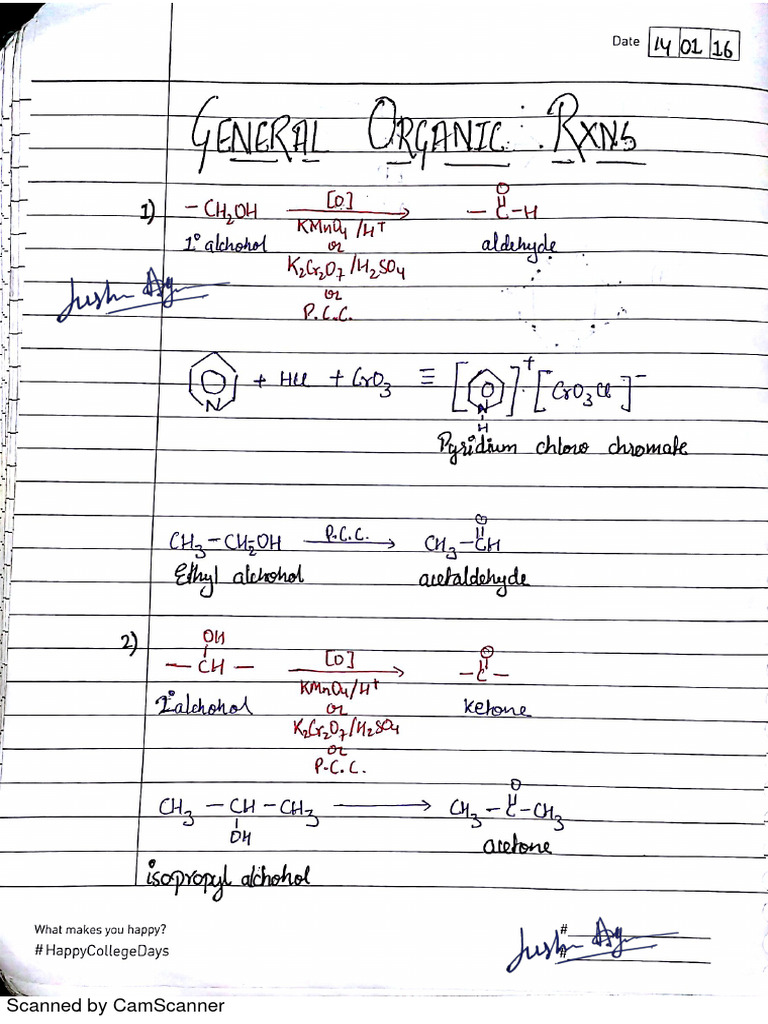 Date 14 01 16
GENERAL ORGANIC RXNS
1) – CH₂OH [O] O
KMnO₄/H⁺ – C–H
1° alchohol or aldehyde
K₂Cr₂O₇/H₂SO₄
or
P.C.C.
N + HCl + CrO₃ ≡ [N H]⁺ [CrO₃Cl]⁻
Pyridium chloro chromate
CH₃–CH₂OH P.C.C. → CH₃–CH O
Ethyl alchohol acetaldehyde
2) OH
– CH – [O] → –C– O
KMnO₄/H⁺
2° alchohol or ketone
K₂Cr₂O₇/H₂SO₄
or
P.C.C.
CH₃ – CH – CH₃ → CH₃ – C – CH₃ O
OH acetone
isopropyl alchohol
What makes you happy?
#HappyCollegeDays
#
#
Scanned by CamScanner